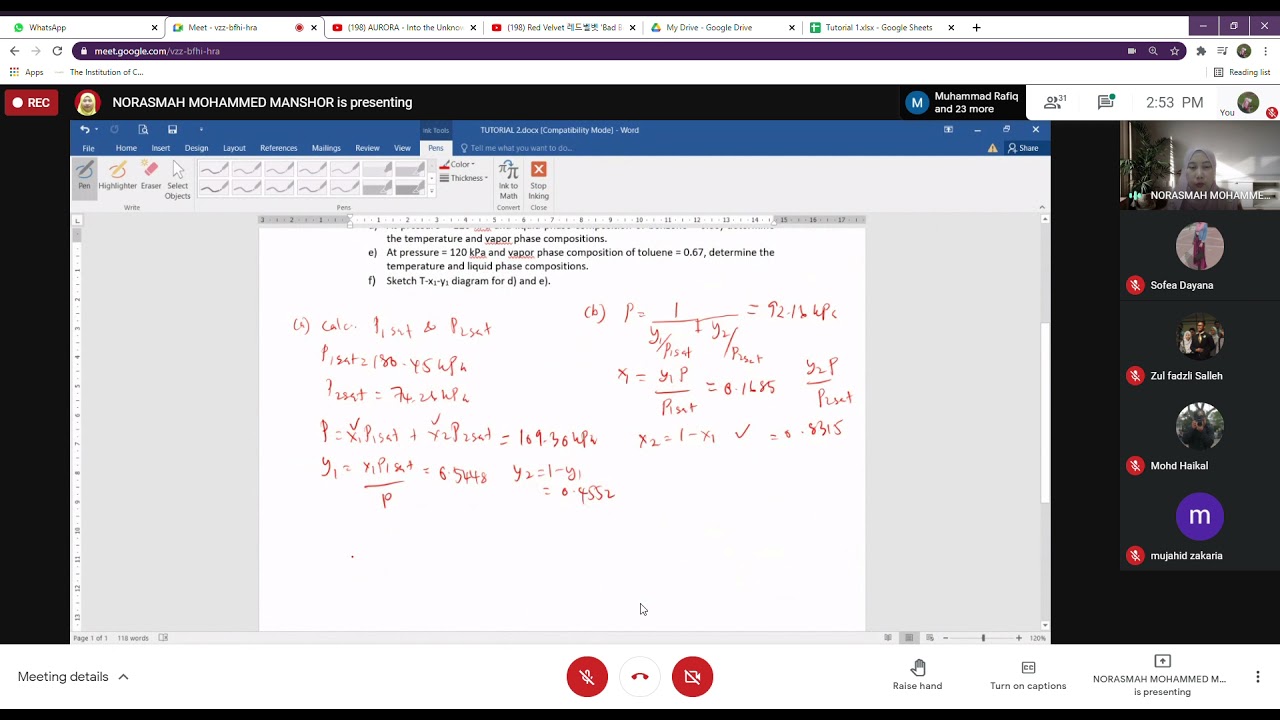 WhatsApp
Meet - vzz-bfhi-hra
(198) AURORA - Into the Unknow
(198) Red Velvet 레드벨벳 'Bad B
My Drive - Google Drive
Tutorial 1.xlsx - Google Sheets
meet.google.com/vzz-bfhi-hra
Apps
The Institution of C...
Reading list
REC
NORASMAH MOHAMMED MANSHOR is presenting
M
Muhammad Rafiq
and 23 more
31
2:53 PM
You
Ink Tools
TUTORIAL 2.docx [Compatibility Mode] - Word
File Home Insert Design Layout References Mailings Review View Pens Tell me what you want to do...
Share
Pen Highlighter Eraser Select Objects
Color
Thickness
Ink to Math
Stop Inking
Write Pens Convert Close
the temperature and vapor phase compositions.
e) At pressure = 120 kPa and vapor phase composition of toluene = 0.67, determine the
temperature and liquid phase compositions.
f) Sketch T-x1-y1 diagram for d) and e).
(a) calc. P1sat & P2sat
P1sat = 180.45 kPa
P2sat = 74.26 kPa
P = x1P1sat + x2P2sat = 109.30 kPa
y1 = x1P1sat / P = 0.5448
y2 = 1 - y1
= 0.4552
(b) P = 1 / (y1/P1sat + y2/P2sat) = 92.16 kPa
x1 = y1P / P1sat = 0.1685
y2P / P2sat
x2 = 1 - x1 ✓ = 0.8315
Page 1 of 1 118 words
120%
NORASMAH MOHAMME...
Sofea Dayana
Zul fadzli Salleh
Mohd Haikal
m
mujahid zakaria
Meeting details
Raise hand
Turn on captions
NORASMAH MOHAMMED M...
is presenting